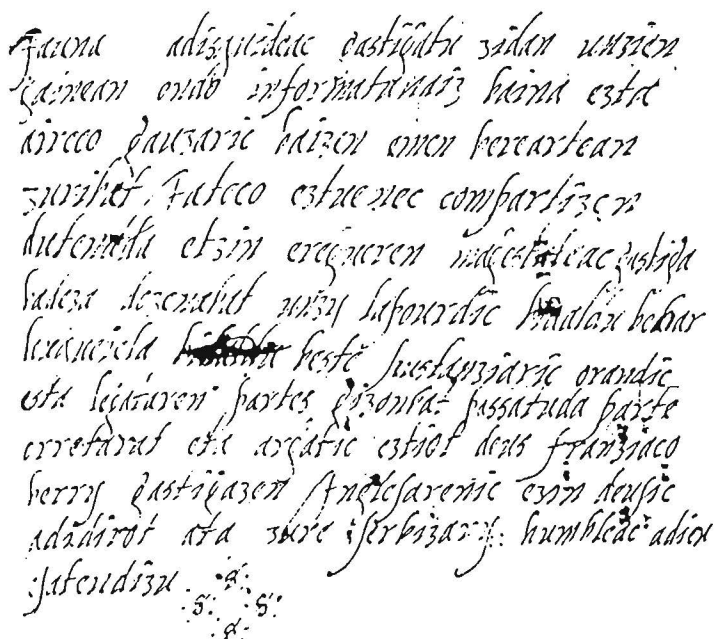 Jauna adisquideac gastigatu zidan unzien
gainean ondo informatunaiz baina ezta
aireco gauzaric baizen emen bereartean
zuribat Jateco eztuenec compartizen
dutena eta etzin eregueren magestateac gastiga
badeza dozenabat unzy lafourdic bidalau behar
luqueiela beste sustanziaric orandic
esta legataren partez gizonbat passatuda parte
erretarat eta argatic eztiot deus franziaco
berry gastigazen Anglesarenic ezin deusic
adidirot ata zure serbizary: humbleac adieu
Jatendizu
S: S: S: S: